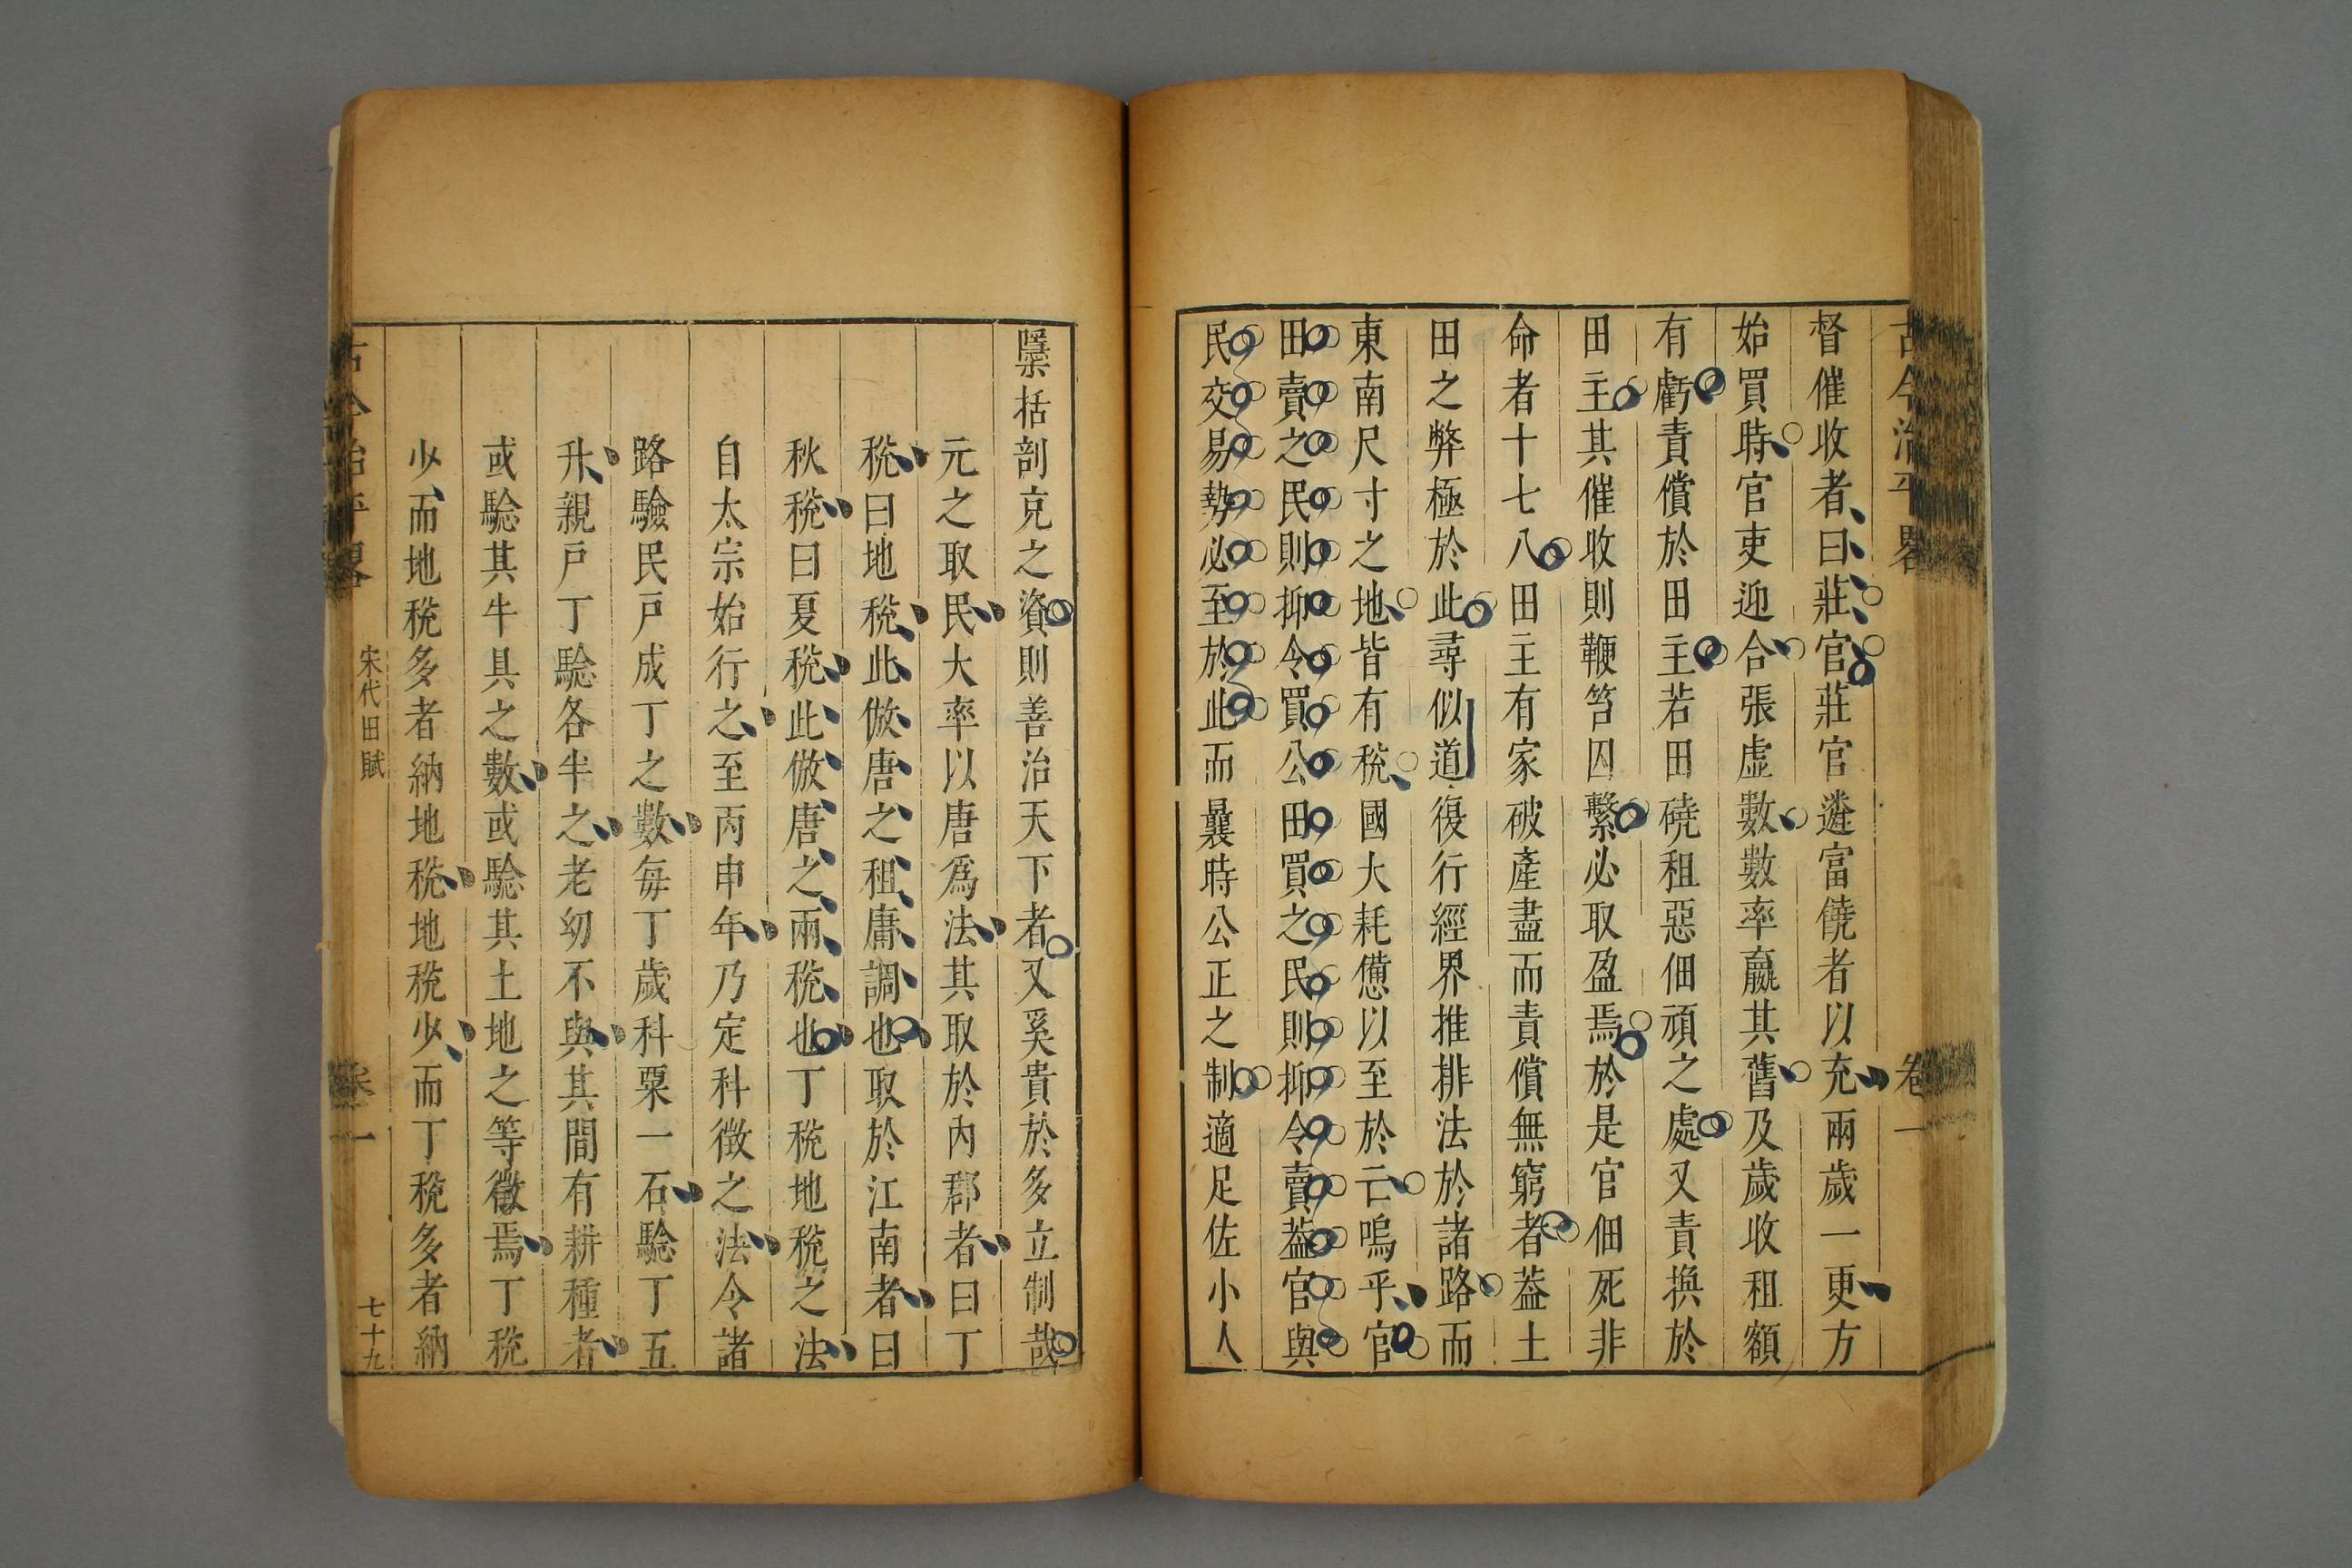 古今治平畧 卷一
督催收者曰莊官莊官遴富饒者以充兩歲一更方
始買時官吏迎合張虛數數率贏其舊及歲收租額
有虧責償於田主若田磽租惡佃頑之處又責換於
田主其催收則鞭笞囚繫必取盈焉於是官佃死非
命者十七八田主有家破產盡而責償無窮者葢土
田之弊極於此尋似道復行經界推排法於諸路而
東南尺寸之地皆有稅國大耗憊以至於亡嗚乎官
田賣之民則抑令買公田買之民則抑令賣葢官與
民交易勢必至於此而曩時公正之制適足佐小人
檃栝剖克之資則善治天下者又奚貴於多立制哉
元之取民大率以唐爲法其取於內郡者曰丁
稅曰地稅此倣唐之租庸調也取於江南者曰
秋稅曰夏稅此倣唐之兩稅也丁稅地稅之法
自太宗始行之至丙申年乃定科徵之法令諸
路驗民戶成丁之數每丁歲科粟一石驗丁五
升親戶丁驗各半之老幼不與其間有耕種者
或驗其牛具之數或驗其土地之等徵焉丁稅
少而地稅多者納地稅地稅少而丁稅多者納
古今治平畧 宋代田賦 卷一 七十九